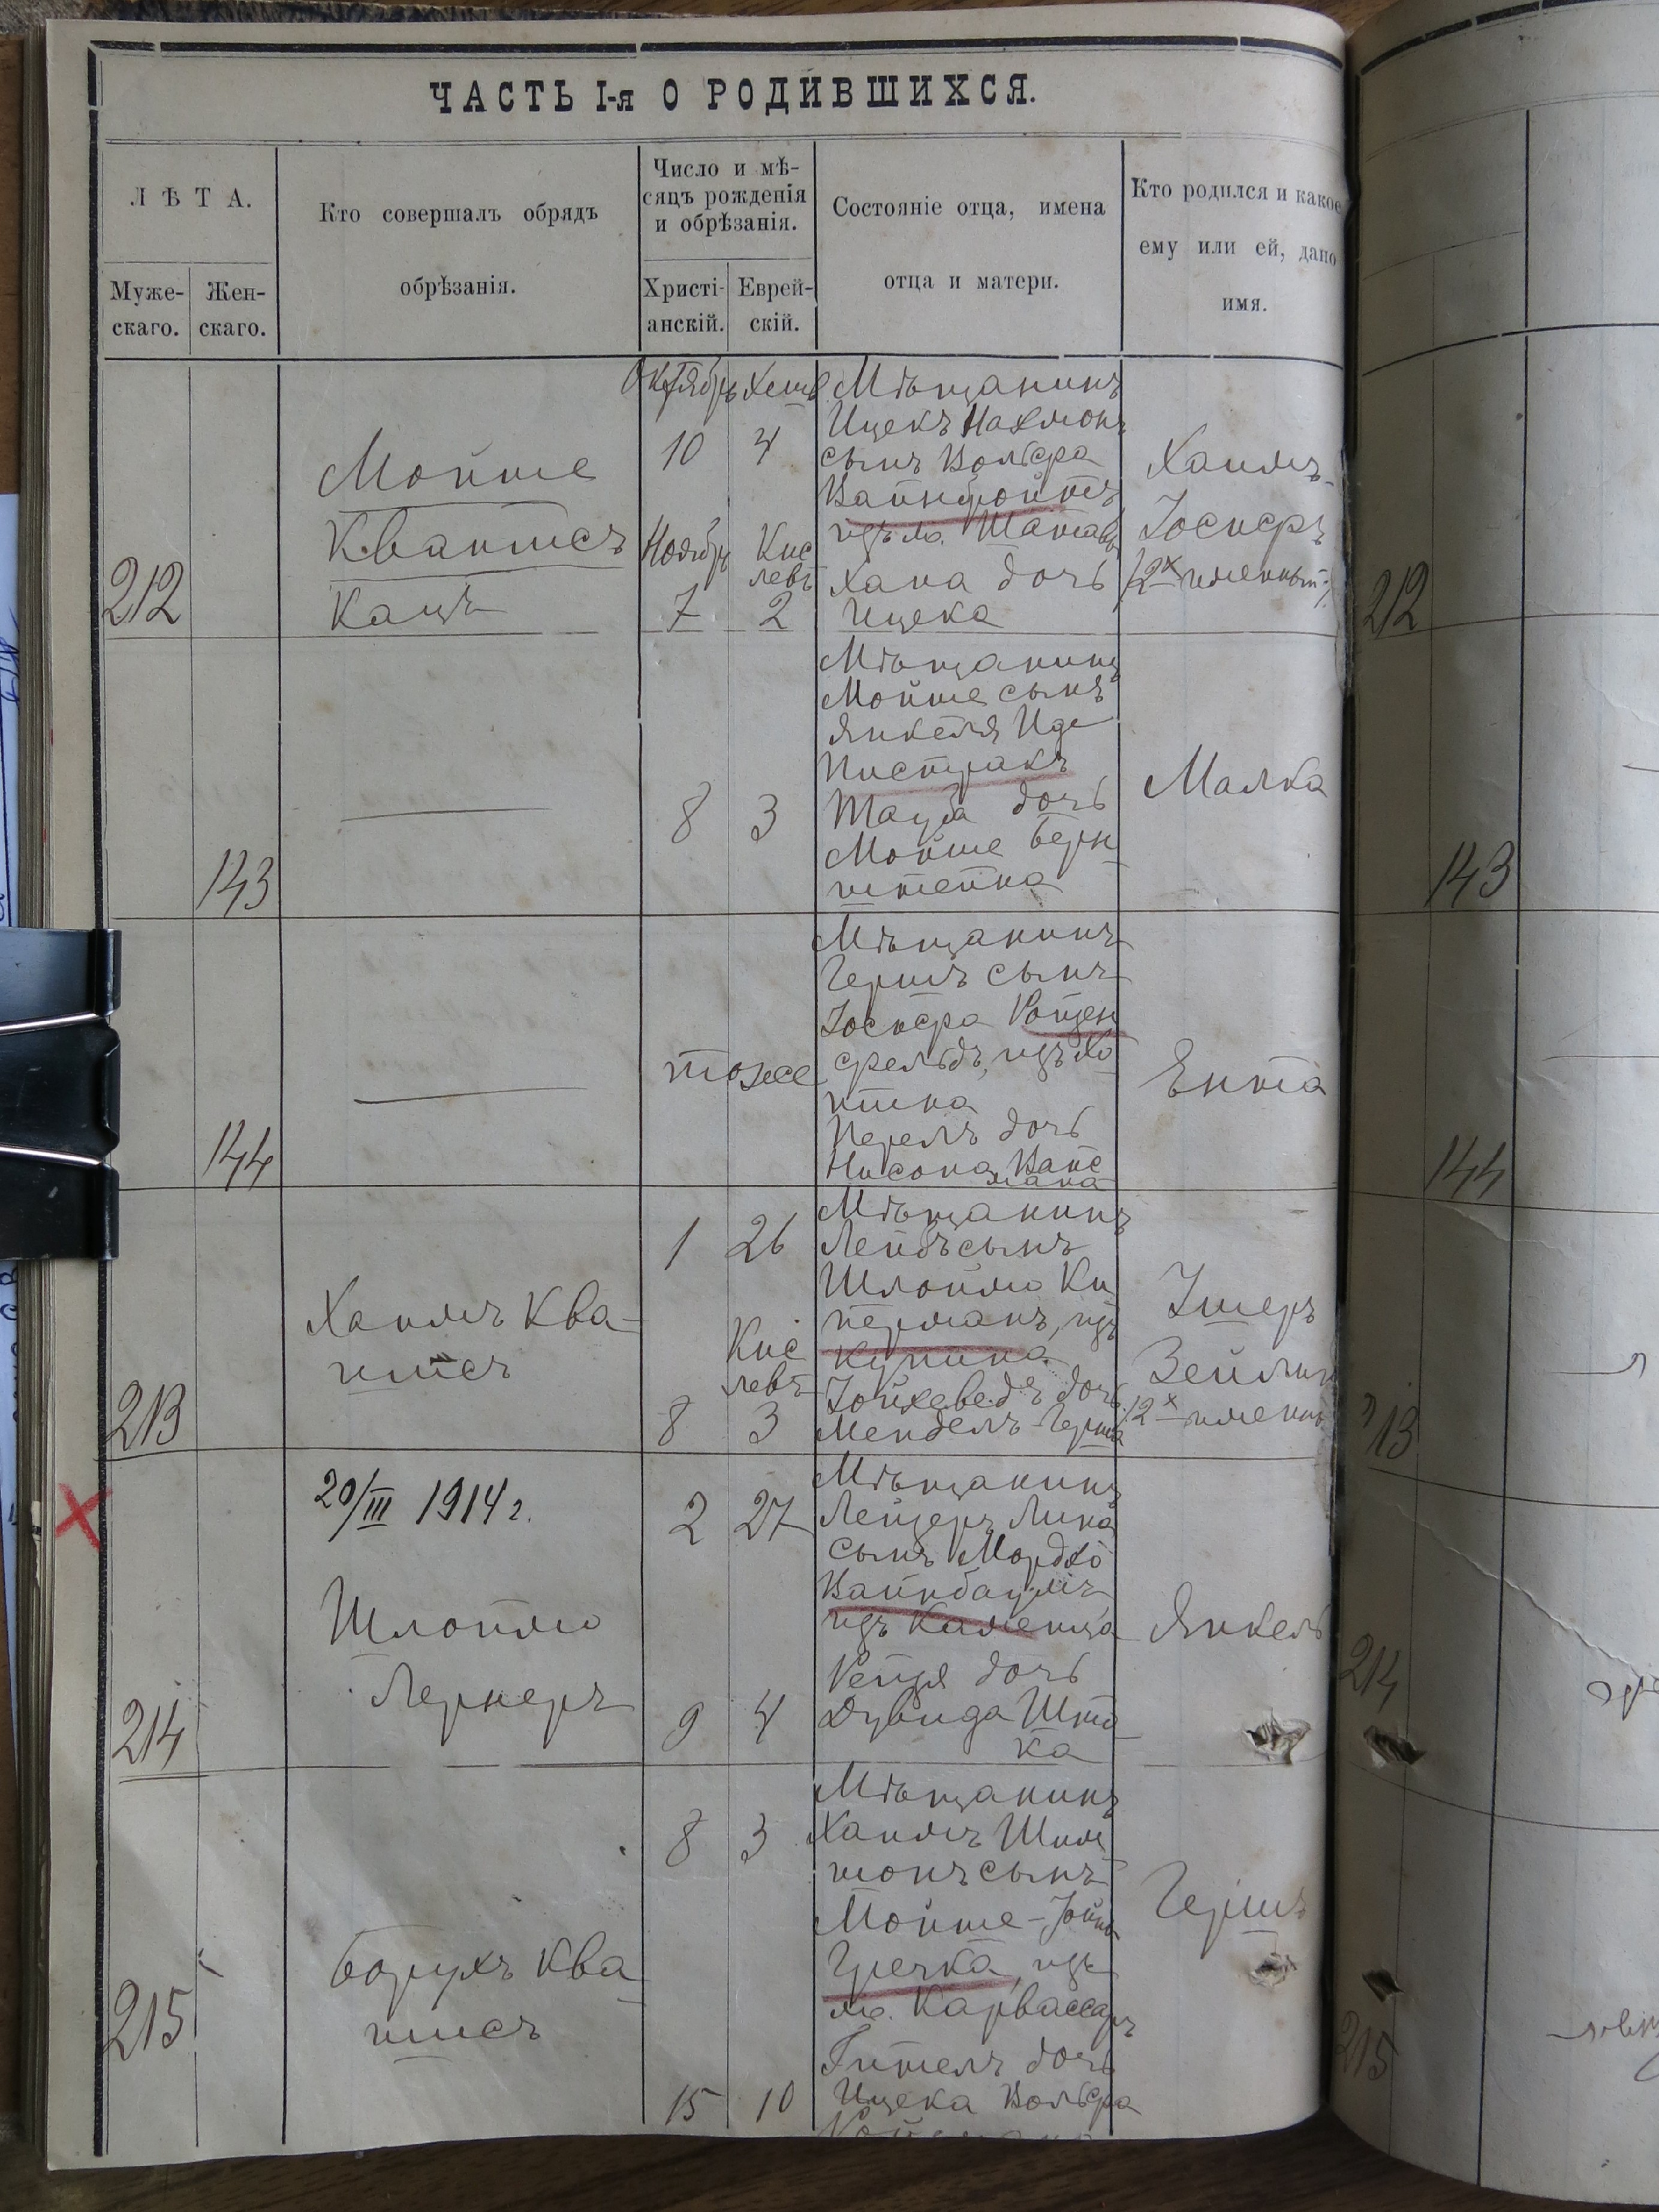 ЧАСТЬ I-я О РОДИВШИХСЯ.
ЛѢТА.
Муже-
скаго.
Жен-
скаго.
Кто совершалъ обрядъ
обрѣзанія.
Число и мѣ-
сяцъ рожденія
и обрѣзанія.
Христі-
анскій.
Еврей-
скій.
Состояніе отца, имена
отца и матери.
Кто родился и какое
ему или ей, дано
имя.
212
Мойше
Кацъ
Октябрь Хешв
10 4
Ноябрь Кис
левъ
7 2
Мѣщанинъ
Ицекъ Нахмонъ
сынъ Вольфа
Вайнбройтъ
изъ м. Шатавы
Хана дочь
Ицека
Хаимъ-
Іосифъ
/2х именный/
212
143
8 3
Мѣщанинъ
Мойше сынъ
Янкеля Иде
Пистракъ
Тауба дочь
Мойше Берн
штейна
Малка
143
144
тоже
Мѣщанинъ
Гершъ сынъ
Іосифа Ройзен
фельдъ, изъ Хо
тина
Перель дочь
Нисона Вайс
мана
Ента
144
213
Хаимъ Ква-
шисъ
1 26
Кис
левъ
8 3
Мѣщанинъ
Лейбъ сынъ
Шлоймо Ку
перманъ, изъ
Купина
Іойхеведъ дочь
Мендель-Герша
Зейлик
/2х именн
213
20/III 1914 г.
214
Шлоймо
Лернеръ
2 27
9 4
Мѣщанинъ
Лейзеръ Липа
сынъ Мордко
Вайнбаумъ
изъ Каменца
Рейзя дочь
Дувида Што
ка
Янкель
214
215
Борухъ Ква
шисъ
8 3
15 10
Мѣщанинъ
Хаимъ Шим
шонъ сынъ
Мойше-Іойно
Гречка, изъ
м. Карвассаръ
Гитель дочь
Ицека Вольфа
Гершъ
215